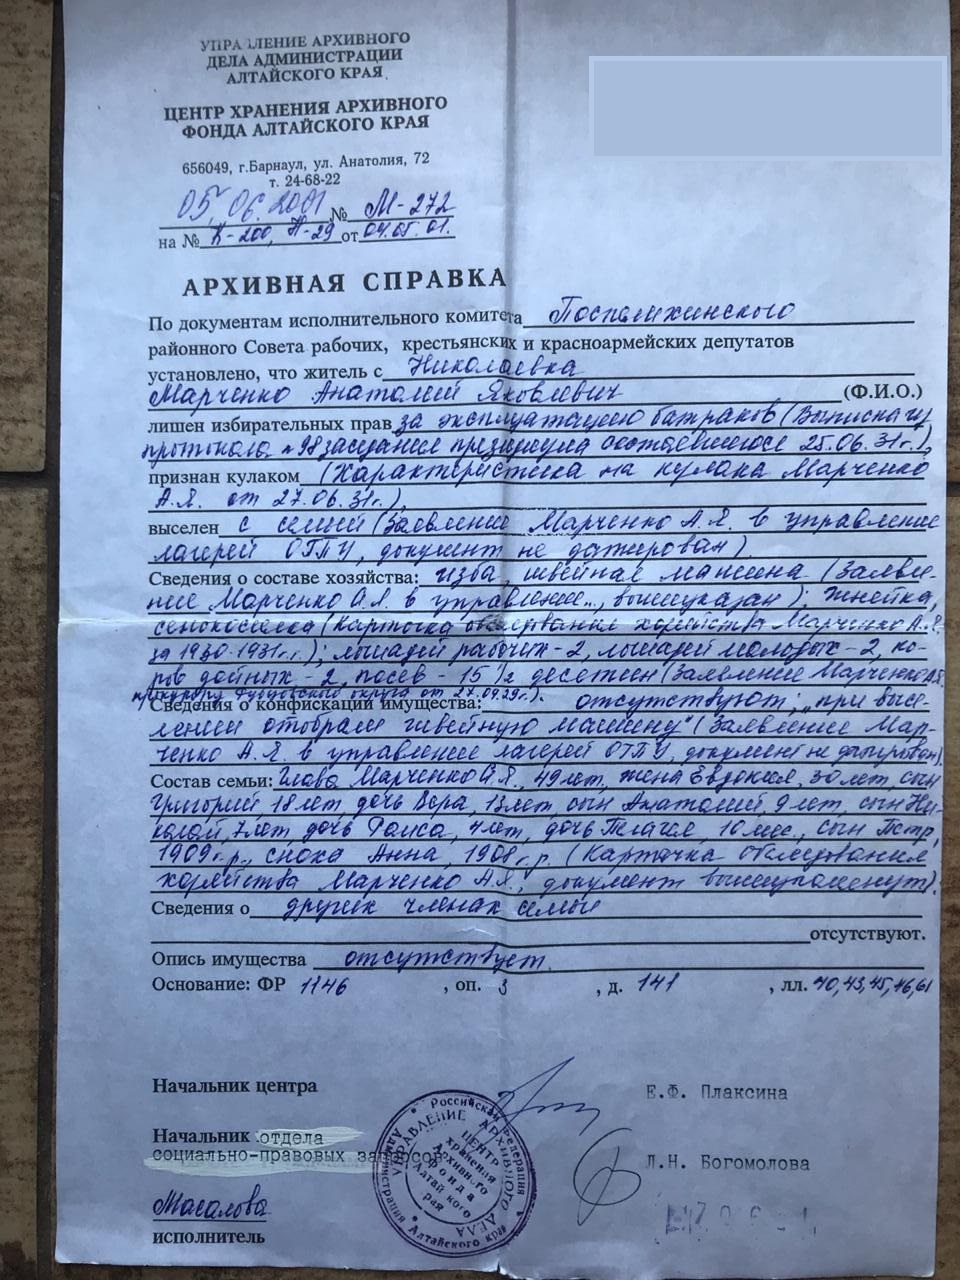 УПРАВЛЕНИЕ АРХИВНОГО
ДЕЛА АДМИНИСТРАЦИИ
АЛТАЙСКОГО КРАЯ
ЦЕНТР ХРАНЕНИЯ АРХИВНОГО
ФОНДА АЛТАЙСКОГО КРАЯ
656049, г.Барнаул, ул. Анатолия, 72
т. 24-68-22
05.06.2001 № М-272
на № К-200, П-29 от 04.05.01.
АРХИВНАЯ СПРАВКА
По документам исполнительного комитета Поспелихинского
районного Совета рабочих, крестьянских и красноармейских депутатов
установлено, что житель с Николаевка
Марченко Анатолий Яковлевич (Ф.И.О.)
лишен избирательных прав за эксплуатацию батраков (Выписка из
протокола №98 заседания президиума состоявшегося 25.06.31г.),
признан кулаком (Характеристика на кулака Марченко
А.Я. от 27.06.31г.),
выселен с семьей (Заявление Марченко А.Я. в управление
лагерей ОГПУ, документ не датирован).
Сведения о составе хозяйства: изба, швейная машина (Заявле-
ние Марченко А.Я. в управление.., вышеуказан); жнейка,
сенокосилка (Карточка обследования хозяйства Марченко А.Я.
за 1930-1931г.г.); лошадей рабочих-2, лошадей молодых-2, ко-
ров дойных-2, посев-15 1/2 десятин (Заявление Марченко А.Я.
прокурору округа от 27.09.29г.).
Сведения о конфискации имущества: отсутствуют; "при высе-
лении отобрали швейную машину" (Заявление Мар-
ченко А.Я. в управление лагерей ОГПУ, документ не датирован)
Состав семьи: Глава Марченко А.Я., 49 лет, жена Евдокия, 30 лет, сын
Григорий, 18 лет, дочь Вера, 13 лет, сын Анатолий, 9 лет, сын Ни-
колай, 7 лет, дочь Раиса, 4 лет, дочь Пелагея, 10 мес., сын Петр,
1909г.р., сноха Анна, 1908г.р. (Карточка обследования
хозяйства Марченко А.Я., документ вышеупомянут).
Сведения о других членах семьи
отсутствуют.
Опись имущества отсутствует.
Основание: ФР 1146 , оп. 3 , д. 141 , лл. 40,43,45,46,61
Начальник центра Е.Ф. Плаксина
Начальник отдела
социально-правовых запросов Л.Н. Богомолова
Российская Федерация * Администрация Алтайского края *
УПРАВЛЕНИЕ АРХИВНОГО ДЕЛА
ЦЕНТР
хранения
Архивного
фонда
Алтайского
края
Масалова
исполнитель